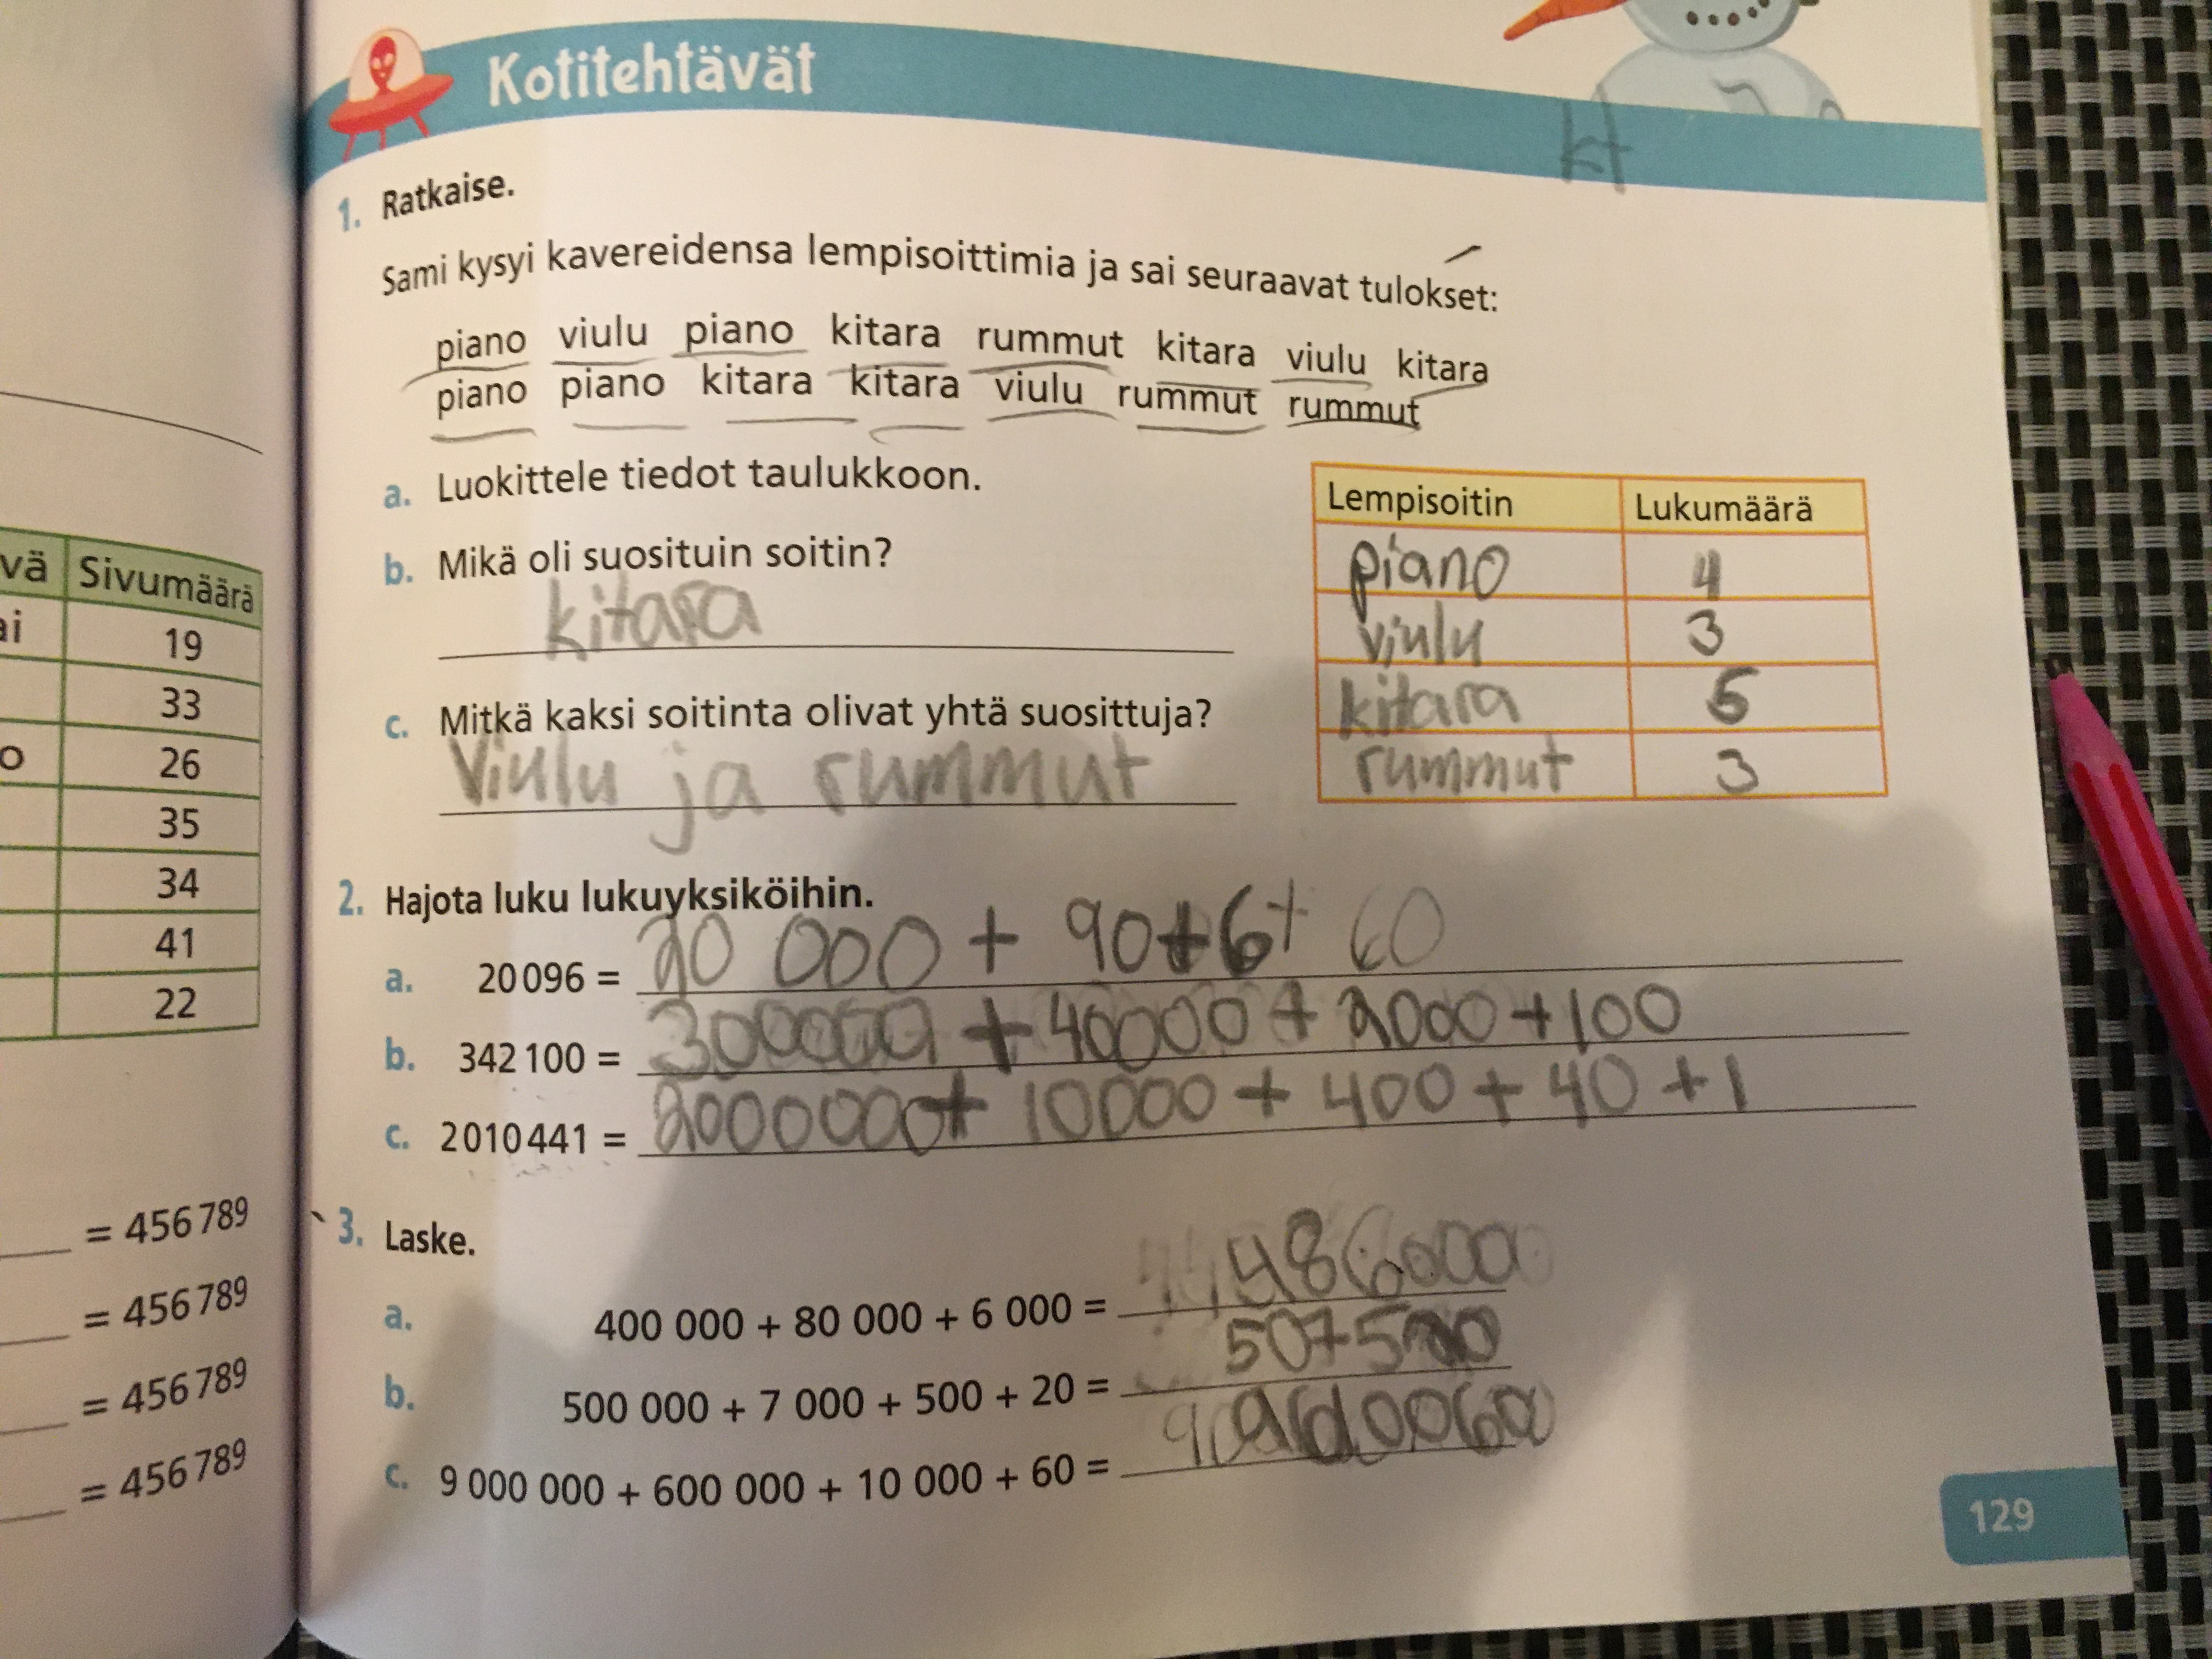 Kotitehtävät
kt
1. Ratkaise.
Sami kysyi kavereidensa lempisoittimia ja sai seuraavat tulokset:
piano viulu piano kitara rummut kitara viulu kitara
piano piano kitara kitara viulu rummut rummut
a. Luokittele tiedot taulukkoon.
b. Mikä oli suosituin soitin?
kitara
c. Mitkä kaksi soitinta olivat yhtä suosittuja?
Viulu ja rummut
Lempisoitin Lukumäärä
piano 4
viulu 3
kitara 5
rummut 3
2. Hajota luku lukuyksiköihin.
a. 20 096 = 20 000 + 90 + 6 + 60
b. 342 100 = 300000 + 40000 + 2000 + 100
c. 2 010 441 = 2000000 + 10000 + 400 + 40 + 1
3. Laske.
a. 400 000 + 80 000 + 6 000 = 486000
b. 500 000 + 7 000 + 500 + 20 = 507520
c. 9 000 000 + 600 000 + 10 000 + 60 =
129
vä Sivumäärä
ai 19
33
o 26
35
34
41
22
= 456 789
= 456 789
= 456 789
= 456 789